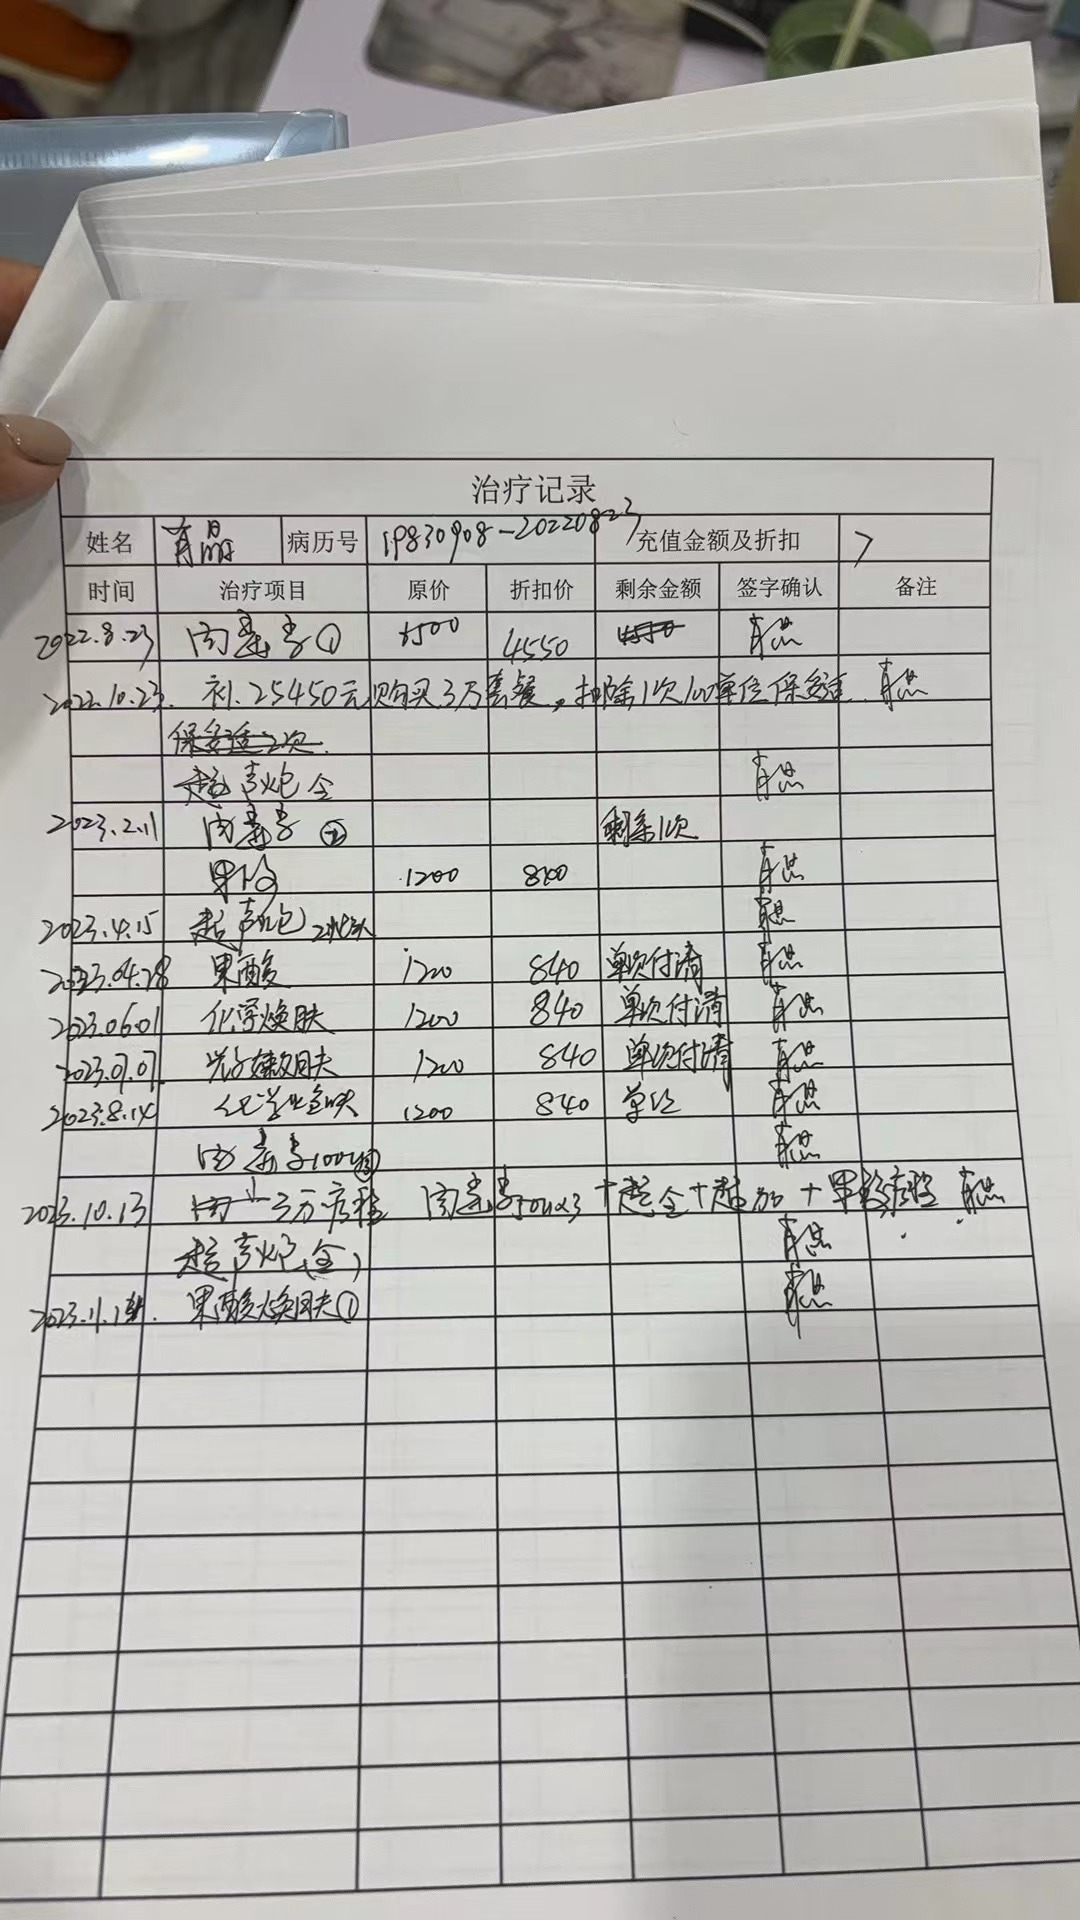 治疗记录
姓名 肖晶 病历号 19830908-20220823 充值金额及折扣 7
时间 治疗项目 原价 折扣价 剩余金额 签字确认 备注
2022.8.23 肉毒素① 6500 4550 4550
2022.10.23. 补.25450元购买3万套餐,扣除1次100单位保妥适.
保妥适2次.
超声炮全
2023.2.11 肉毒素② 剩余1次
果酸 1200 840
2023.4.15 超声炮
2023.04.28 果酸 1200 840 单次付清
2023.06.01 化学焕肤 1200 840 单次付清
2023.07.07. 光子嫩肤 1200 840 单次付清
2023.8.14 化学焕肤 1200 840 单次
肉毒素100u③
2023.10.13 3万疗程 肉毒素50u×3+超全+超加+果酸疗程
超声炮(全)
2023.11.14. 果酸焕肤①